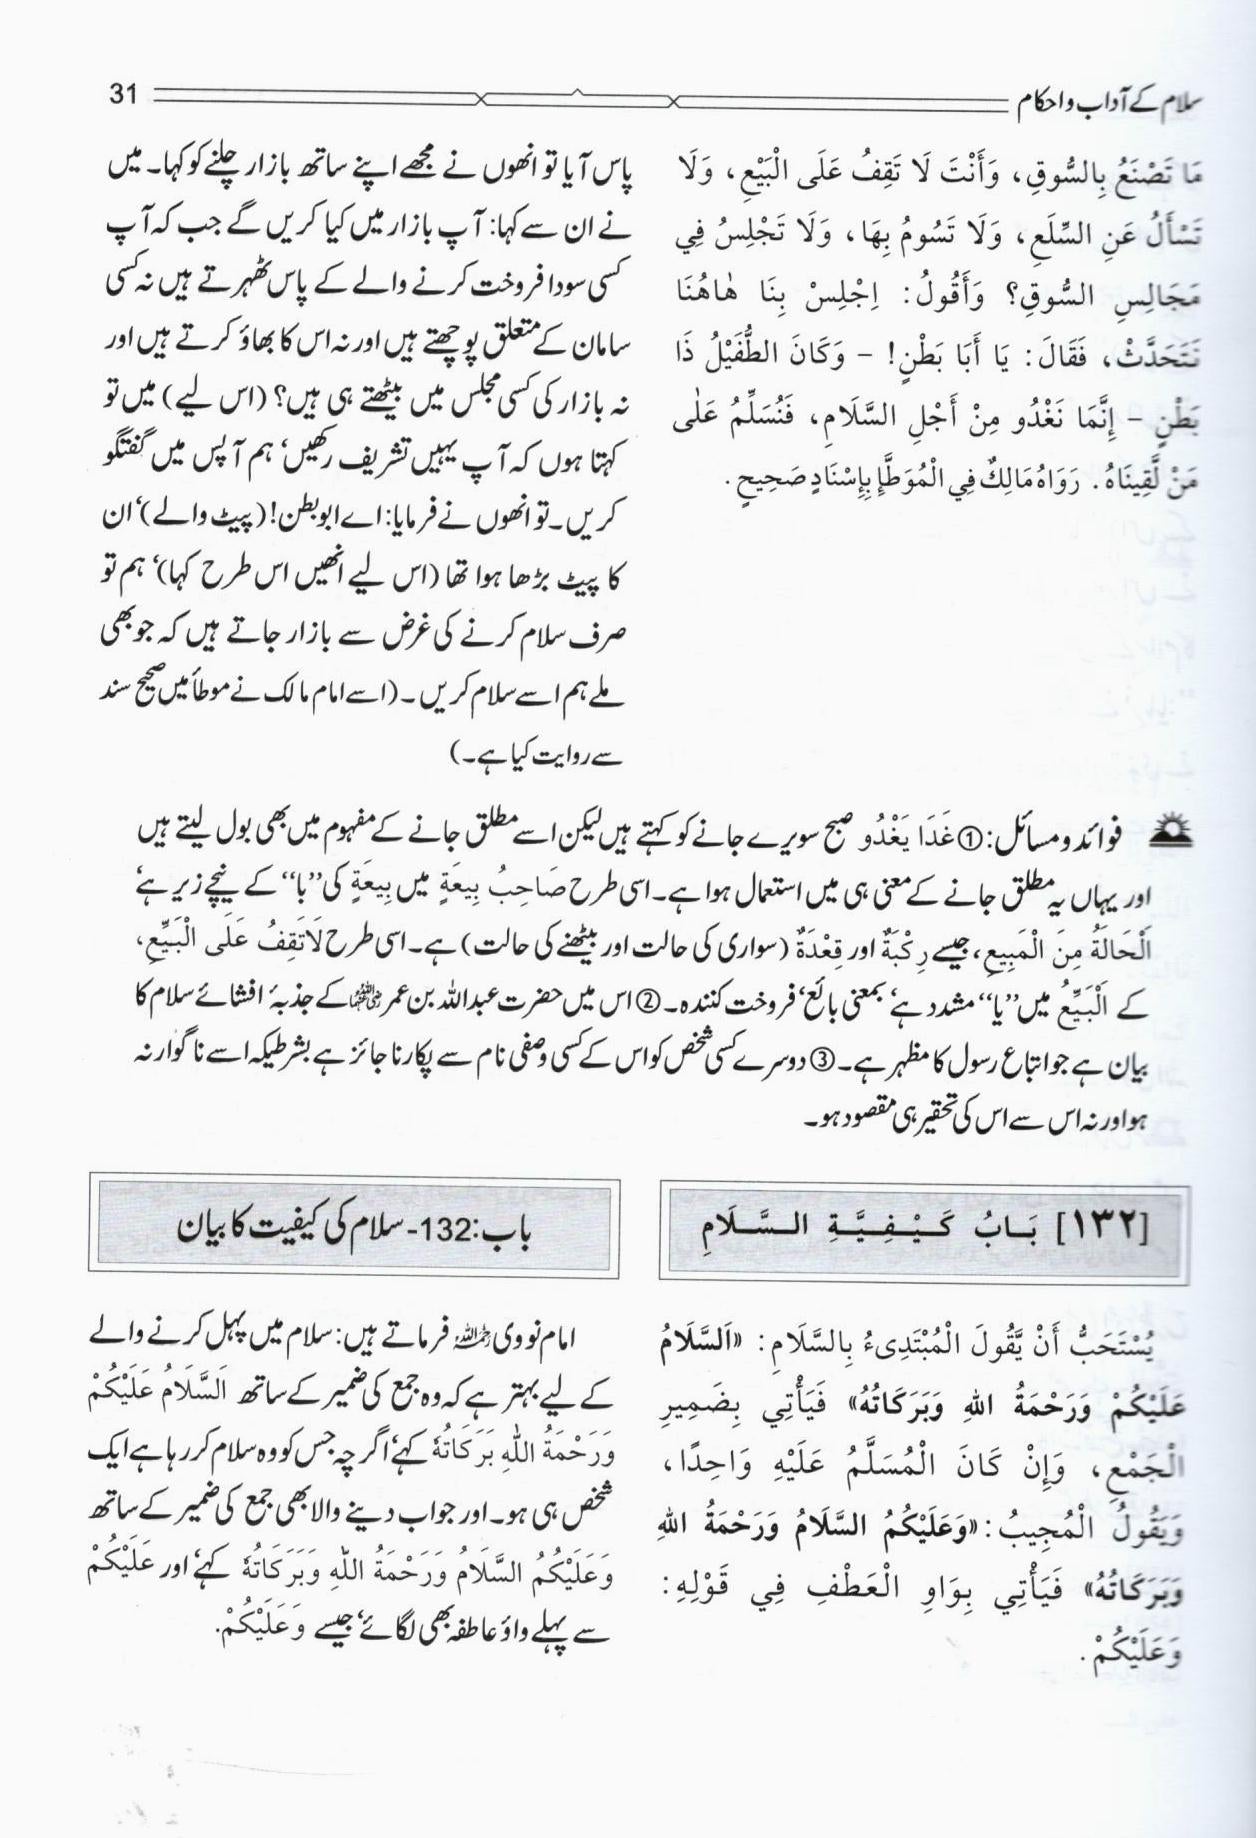 سلام کے آداب و احکام
31
مَا تَصْنَعُ بِالسُّوقِ، وَأَنْتَ لَا تَقِفُ عَلَى الْبَيْعِ، وَلَا
تَسْأَلُ عَنِ السِّلَعِ، وَلَا تَسُومُ بِهَا، وَلَا تَجْلِسُ فِي
مَجَالِسِ السُّوقِ؟ وَأَقُولُ: اِجْلِسْ بِنَا هٰاهُنَا
نَتَحَدَّثْ، فَقَالَ: يَا أَبَا بَطْنٍ! - وَكَانَ الطُّفَيْلُ ذَا
بَطْنٍ - إِنَّمَا نَغْدُو مِنْ أَجْلِ السَّلَامِ، فَنُسَلِّمُ عَلٰى
مَنْ لَّقِينَاهُ. رَوَاهُ مَالِكٌ فِي الْمُوَطَّإِ بِإِسْنَادٍ صَحِيحٍ.
پاس آیا تو انھوں نے مجھے اپنے ساتھ بازار چلنے کو کہا۔ میں
نے ان سے کہا: آپ بازار میں کیا کریں گے جب کہ آپ
کسی سودا فروخت کرنے والے کے پاس ٹھہرتے ہیں نہ کسی
سامان کے متعلق پوچھتے ہیں اور نہ اس کا بھاؤ کرتے ہیں اور
نہ بازار کی کسی مجلس میں بیٹھتے ہی ہیں؟ (اس لیے) میں تو
کہتا ہوں کہ آپ یہیں تشریف رکھیں، ہم آپس میں گفتگو
کریں۔ تو انھوں نے فرمایا: اے ابو بطن! (پیٹ والے)، ان
کا پیٹ بڑھا ہوا تھا (اس لیے انھیں اس طرح کہا)، ہم تو
صرف سلام کرنے کی غرض سے بازار جاتے ہیں کہ جو بھی
ملے ہم اسے سلام کریں۔ (اسے امام مالک نے موطأ میں صحیح سند
سے روایت کیا ہے۔)
فوائد و مسائل: ① غَدَا يَغْدُو صبح سویرے جانے کو کہتے ہیں لیکن اسے مطلق جانے کے مفہوم میں بھی بول لیتے ہیں
اور یہاں یہ مطلق جانے کے معنی ہی میں استعمال ہوا ہے۔ اسی طرح صَاحِبُ بِيعَةٍ میں بِيعَةٍ کی ”با“ کے نیچے زیر ہے،
اَلْحَالَةُ مِنَ الْمَبِيعِ، جیسے رِكْبَةٌ اور قِعْدَةٌ (سواری کی حالت اور بیٹھنے کی حالت) ہے۔ اسی طرح لَاتَقِفُ عَلَى الْبَيِّعِ،
کے اَلْبَيِّعُ میں ”یا“ مشدد ہے، بمعنی بائع، فروخت کنندہ۔ ② اس میں حضرت عبداللہ بن عمر رضی اللہ عنہما کے جذبۂ افشائے سلام کا
بیان ہے جو اتباع رسول کا مظہر ہے۔ ③ دوسرے کسی شخص کو اس کے کسی وصفی نام سے پکارنا جائز ہے بشرطیکہ اسے ناگوار نہ
ہو اور نہ اس سے اس کی تحقیر ہی مقصود ہو۔
[١٣٢] بَابُ كَيْفِيَّةِ السَّلَامِ
باب: 132- سلام کی کیفیت کا بیان
يُسْتَحَبُّ أَنْ يَّقُولَ الْمُبْتَدِىءُ بِالسَّلَامِ: «اَلسَّلَامُ
عَلَيْكُمْ وَرَحْمَةُ اللهِ وَبَرَكَاتُهُ» فَيَأْتِي بِضَمِيرِ
الْجَمْعِ، وَإِنْ كَانَ الْمُسَلَّمُ عَلَيْهِ وَاحِدًا،
وَيَقُولُ الْمُجِيبُ: «وَعَلَيْكُمُ السَّلَامُ وَرَحْمَةُ اللهِ
وَبَرَكَاتُهُ» فَيَأْتِي بِوَاوِ الْعَطْفِ فِي قَوْلِهِ:
وَعَلَيْكُمْ.
امام نووی رحمہ اللہ فرماتے ہیں: سلام میں پہل کرنے والے
کے لیے بہتر ہے کہ وہ جمع کی ضمیر کے ساتھ اَلسَّلَامُ عَلَيْكُمْ
وَرَحْمَةُ اللّٰهِ بَرَكَاتُهُ کہے، اگرچہ جس کو وہ سلام کر رہا ہے ایک
شخص ہی ہو۔ اور جواب دینے والا بھی جمع کی ضمیر کے ساتھ
وَعَلَيْكُمُ السَّلَامُ وَرَحْمَةُ اللّٰهِ وَبَرَكَاتُهُ کہے، اور عَلَيْكُمْ
سے پہلے واؤ عاطفہ بھی لگائے، جیسے وَعَلَيْكُمْ.